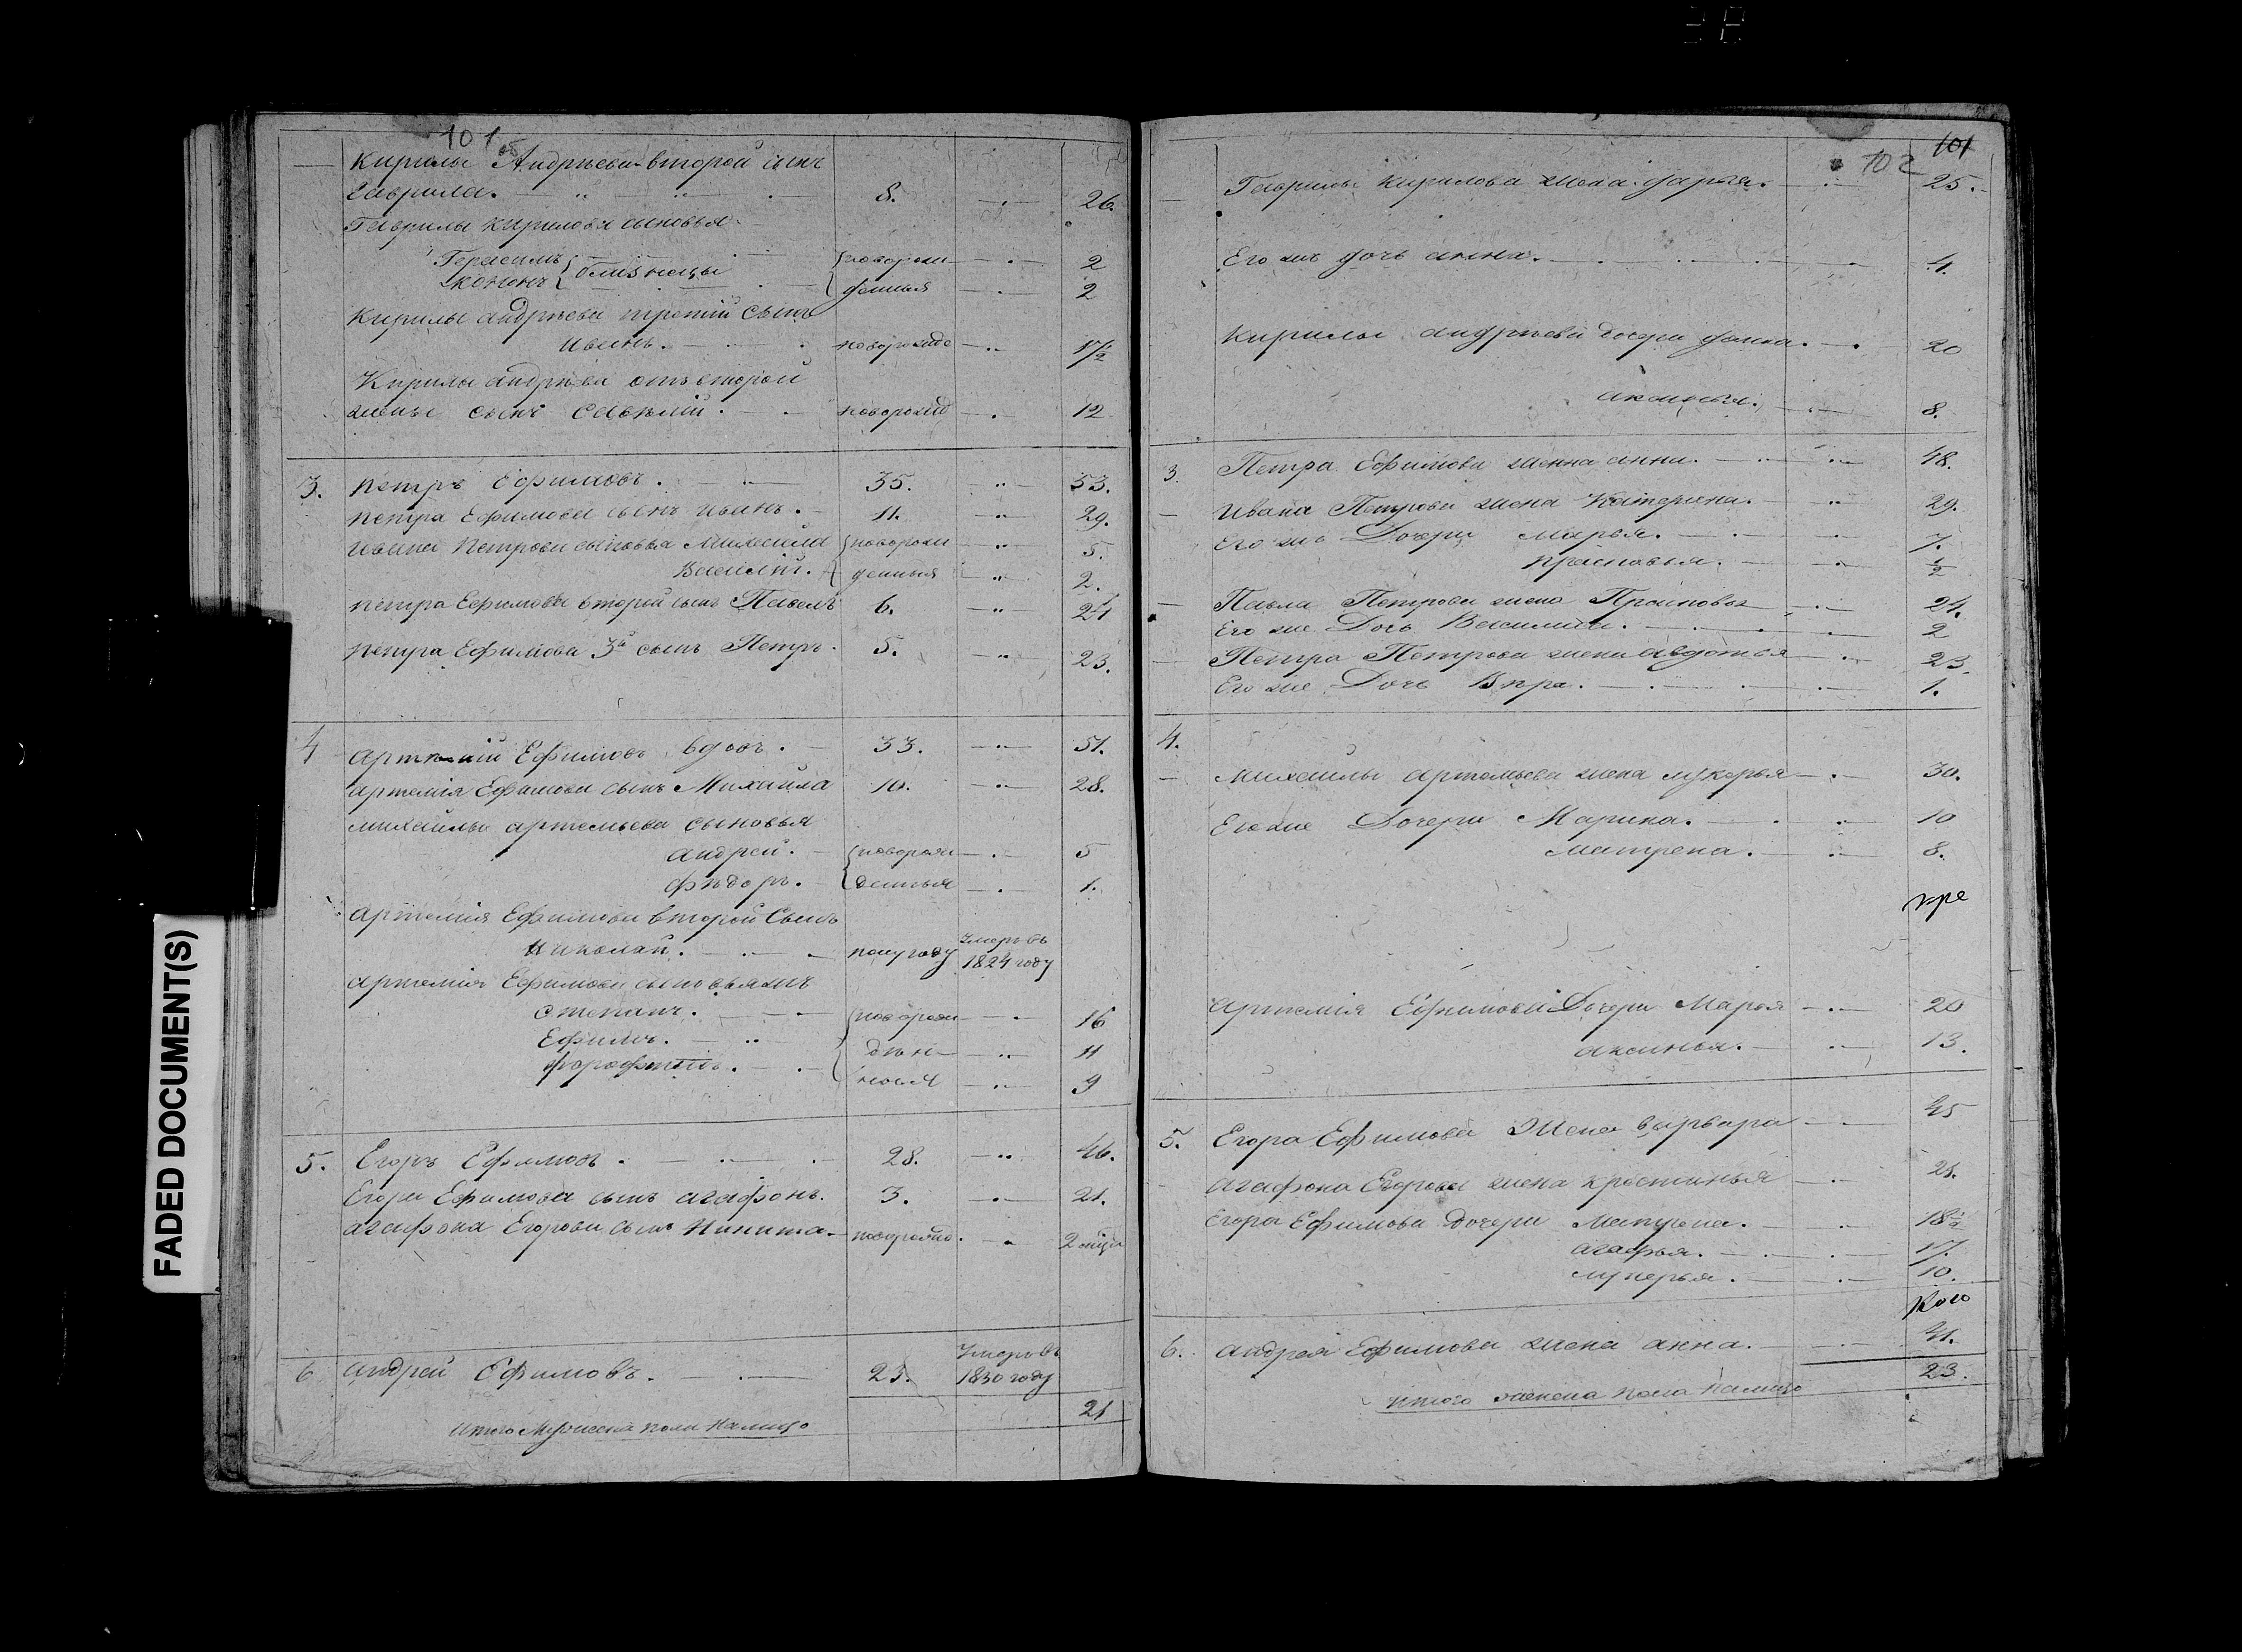 101 об
Кирилы Андрѣева второй сынъ
Гаврила. 8. 26.
Гаврилы Кирилова сыновья
Герасимъ близнецы новорож 2
Кононъ денныя 2
Кирилы андрѣева третий сынъ
Иванъ. новорожде 17/2
Кирилы андрѣева отъ второй
жены сынъ Савѣлій. новорожд 12
3. Петръ Ефимовъ. 35. 53.
Петра Ефимова сынъ иванъ. 11. 29.
Ивана Петрова сыновья Михаила новорож 5.
Василій. денныя 2.
Петра Ефимова второй сынъ Павелъ 6. 24
Петра Ефимова 3й сынъ Петръ. 5. 23.
4 Артемій Ефимовъ вдовъ. 33. 51.
Артемія Ефимова сынъ Михайла 10. 28.
Михайлы артемьева сыновья
андрей. новорож 5
фѣдоръ. денныя 1.
Артемія Ефимова второй Сынъ
Николай. полугоду Умеръ въ 1824 году
Артемія Ефимова сыновьяжъ
Степанъ. новорож 16
Ефимъ. дѣн 11
ныя 9
5. Егоръ Ефимовъ. 28. 46.
Егора Ефимова сынъ агафонъ. 3. 21.
агафона Егорова сынъ Никита. новорожде. 2 мцы
6 андрей Ефимовъ. 23. Умеръ въ 1830 году
Итого Мужеска пола Налицо 21
101
102
Гаврилы Кирилова жена дарья. 25.
Его жъ дочь анна. 4.
Кирилы андрѣева дочери 20
аксинья. 8.
3. Петра Ефимова женна анна. 48.
Ивана Петрова жена Катерина. 29.
Его же Дочери Марья. 7.
Прасковья. 1/2
Павла Петрова жена Прасковья 24.
Его же Дочь Василиса. 2
Петра Петрова жена авдотья 23.
Его же Дочь Вѣра. 1.
4.
Михайлы артемьева жена лукерья 30.
Его же Дочери Марина. 10
Матрена. 8.
Артемія Ефимова Дочери Марья 20
аксинья. 13.
5. Егора Ефимова Жена варвара 45
Агафона Егорова жена крестинья 21.
Егора Ефимова дочери Матрена. 18 1/2
агафья. 17.
лукерья. 10.
6. андрея Ефимова жена анна. 41.
итого женска пола налицо 23.
FADED DOCUMENT(S)